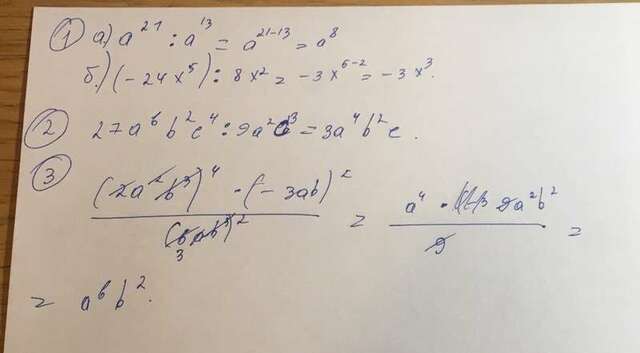 ① а) a²¹ : a¹³ = a²¹⁻¹³ = a⁸
б.) (-24x⁵) : 8x² = -3x⁵⁻² = -3x³.
② 27a⁶b²c⁴ : 9a²c³ = 3a⁴b²c.
③ (2a²b³)⁴ · (-3ab)² / (6ab³)² 3 = a⁴ · 9a²b² / 9 =
= a⁶b².